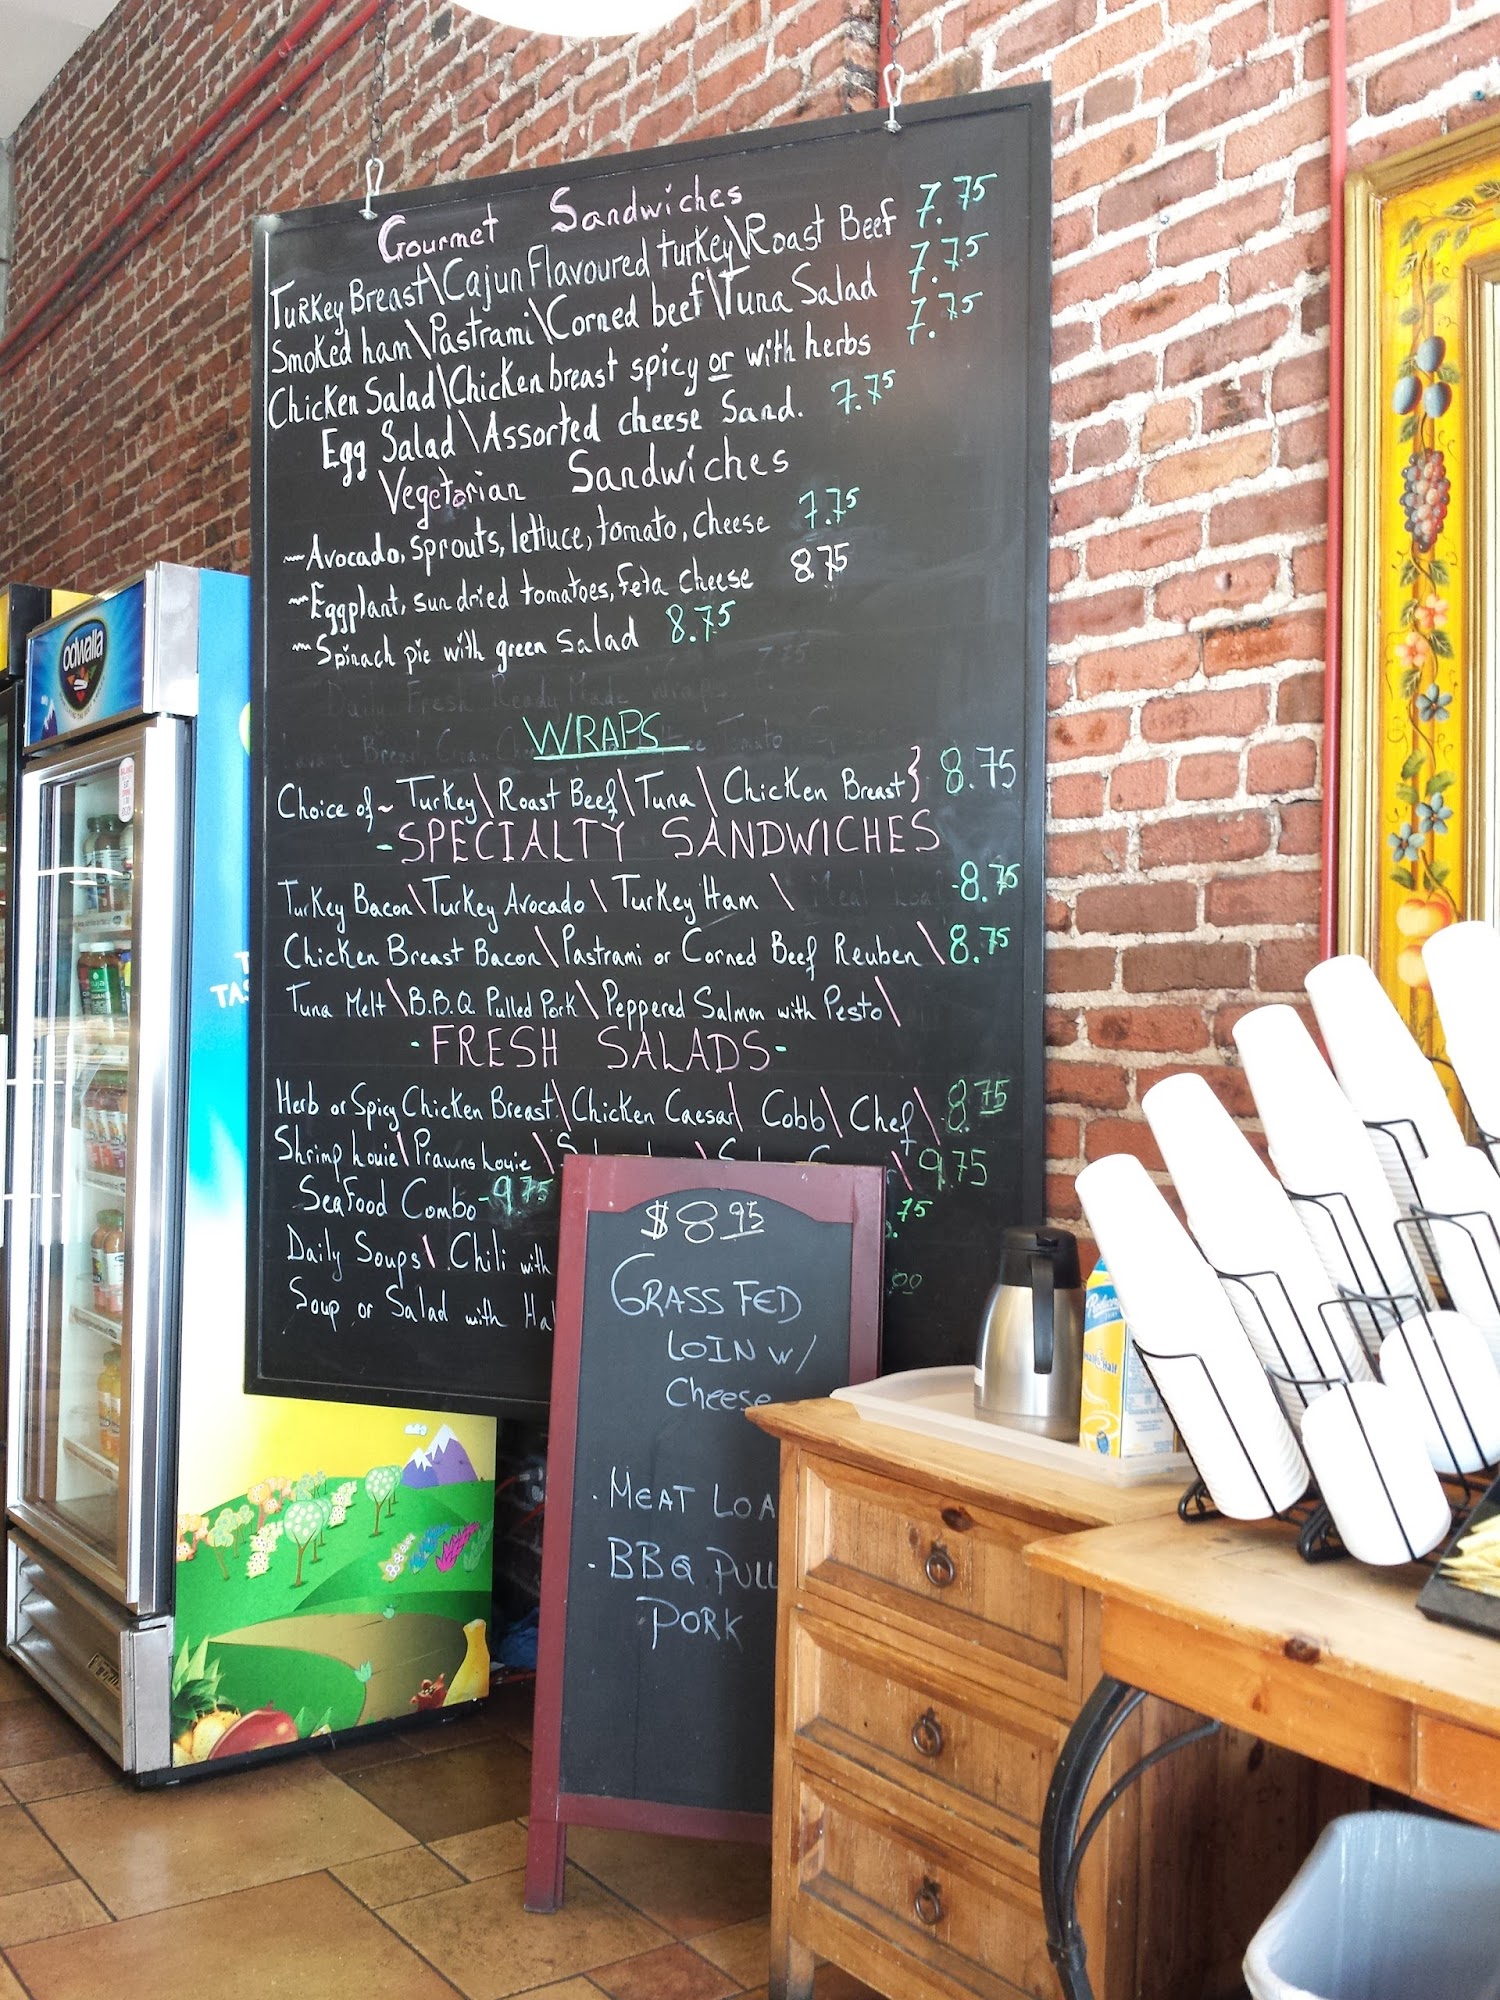 Gourmet Sandwiches
Turkey Breast\Cajun Flavoured turkey\Roast Beef 7.75
Smoked ham\Pastrami\Corned beef\Tuna Salad 7.75
Chicken Salad\Chicken breast spicy or with herbs 7.75
Egg Salad\Assorted cheese Sand. 7.75
Vegetarian Sandwiches
~Avocado, sprouts, lettuce, tomato, cheese 7.75
~Eggplant, sun dried tomatoes, Feta cheese 8.75
~Spinach pie with green salad 8.75
Daily Fresh Ready Made Wraps 7.75
WRAPS
Choice of ~ Turkey\Roast Beef\Tuna\Chicken Breast} 8.75
-SPECIALTY SANDWICHES
Turkey Bacon\Turkey Avocado\Turkey Ham\ Meat Loaf -8.75
Chicken Breast Bacon\Pastrami or Corned Beef Reuben\8.75
Tuna Melt\B.B.Q Pulled Pork\Peppered Salmon with Pesto\
-FRESH SALADS-
Herb or Spicy Chicken Breast\Chicken Caesar\Cobb\Chef\8.75
Shrimp Louie\Prawns Louie\ \ \9.75
SeaFood Combo-9.75
Daily Soups\Chili with .75
Soup or Salad with Ha .00
$8.95
GRASS FED
LOIN W/
Cheese
- MEAT LOA
- BBQ PULL
PORK
odwalla
T
TAS
Half & Half